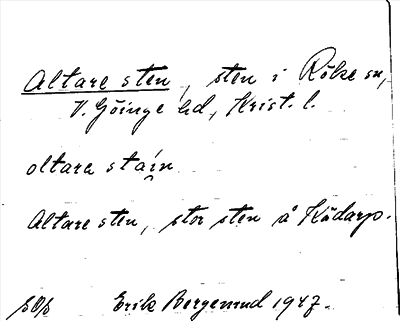 Altare sten, sten i Röke sn,
V. Göinge hd, Krist. l.
oltara stain
Altare sten, stor sten å Kådarp.
Erik Bergemud 1947.